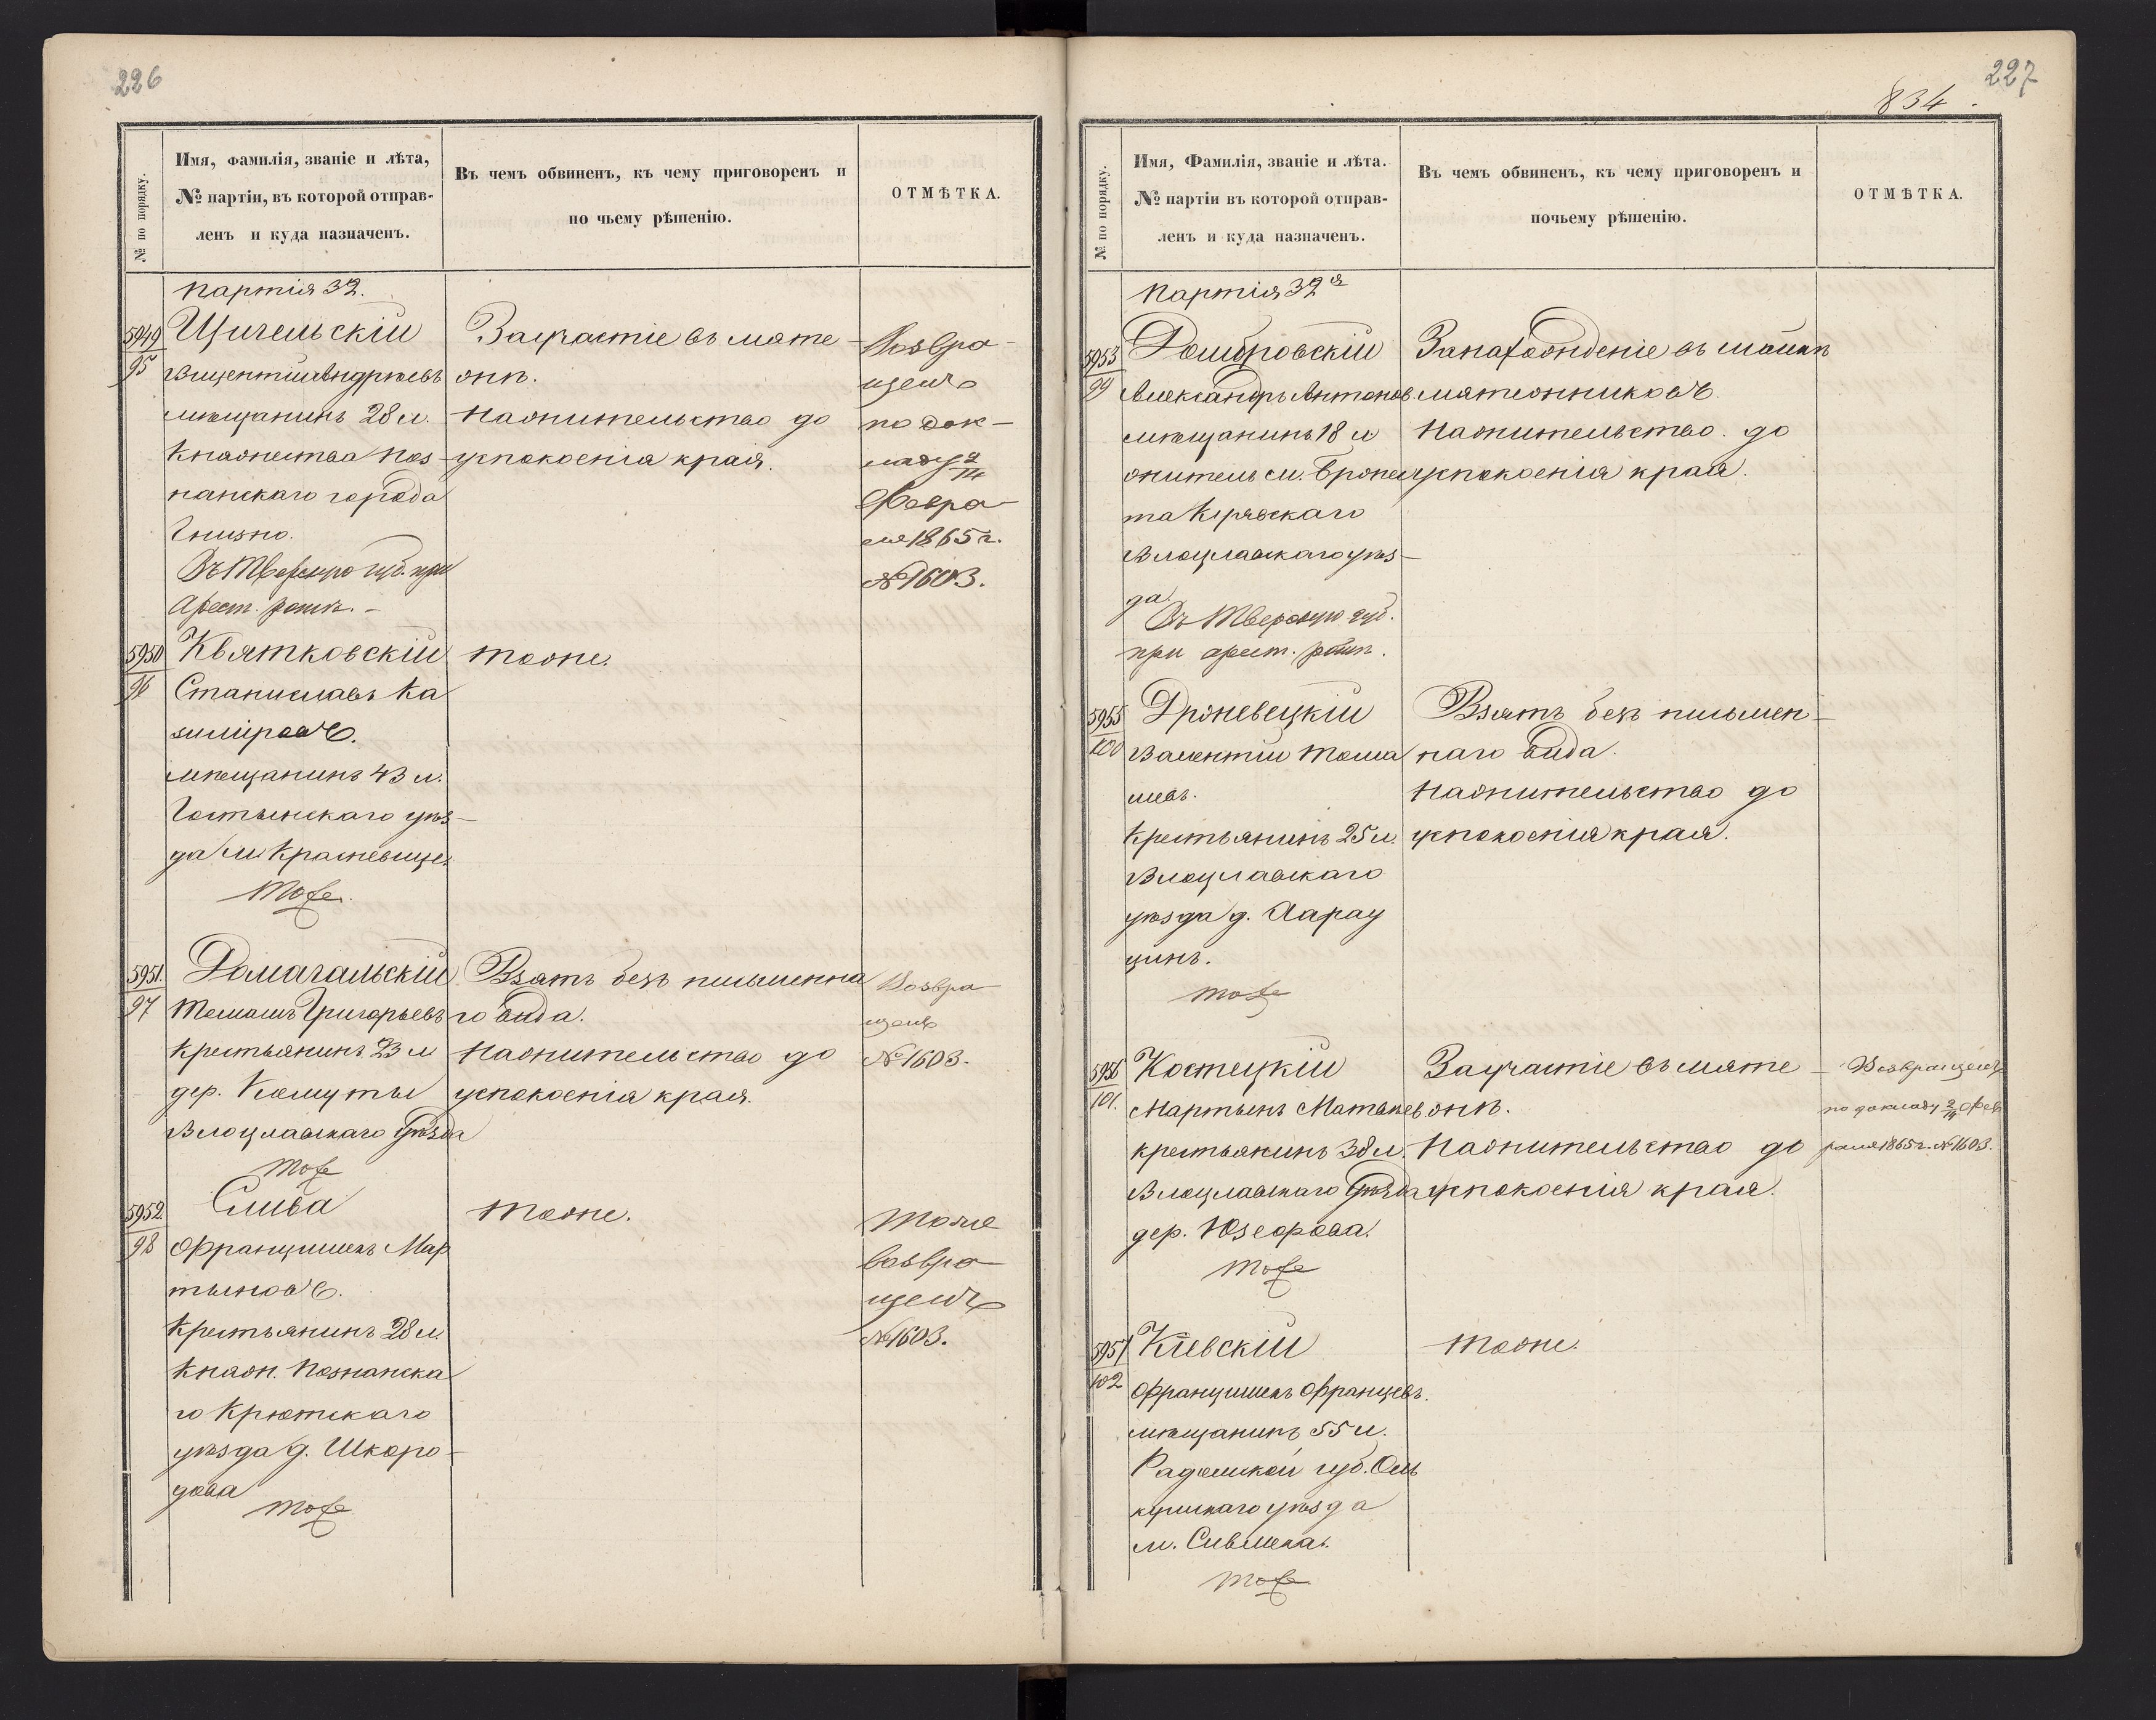 226
№ по порядку.
Имя, фамилія, званіе и лѣта,
№ партіи, въ которой отправ-
ленъ и куда назначенъ.
Въ чемъ обвиненъ, къ чему приговоренъ и
по чьему рѣшенію.
ОТМѢТКА.
партія 32.
5949
95
Щигельскій
Вицентій Андржевъ
мѣщанинъ 28 л.
Княжества Поз-
нанскаго города
Гнизно.
Въ Тверскую губ. при
Арест. ротѣ. –
За участіе въ мяте-
жѣ.
На жительство до
успокоенія края.
Возвра-
щенъ
по док-
ладу 2/14
Февра-
ля 1865 г.
№ 1603.
5950
96
Квятковскій
Станиславъ Ка
зиміровъ.
мѣщанинъ 43 л.
Гостынскаго уѣз-
да м. Красневице.
Тоже.
тоже.
5951.
97
Домагальскій
Томашъ Григорьевъ
крестьянинъ 23 л
дер. Комуты
Влоцлавскаго Уѣзда
Тоже
Взятъ безъ письменна
го вида.
На жительство до
успокоенія края.
Возвра-
щенъ
№ 1603.
5952
98
Слива
Францишекъ Мар
тыновъ.
Крестьянинъ 28 л.
Княж. Познанска
го Крютскаго
уѣзда д. Шкоро-
дова
Тоже
тоже.
тоже
возвра-
щенъ
№ 1603.
227
834.
№ по порядку.
Имя, Фамилія, званіе и лѣта.
№ партіи въ которой отправ-
ленъ и куда назначенъ.
Въ чемъ обвиненъ, къ чему приговоренъ и
почьему рѣшенію.
ОТМѢТКА.
партія 32я
5953
99
Домбровскій
Александръ Антонов.
мѣщанинъ 18 л
житель м. Бронс
та Куявскаго
Влоцлавскаго уѣз-
да.
Въ Тверскую губ.
при арест. ротѣ.
За нахожденіе въ шайкѣ
мятежниковъ.
На жительство до
успокоенія края.
5955
100
Дроневецкій
Валентій Тома
шевъ.
Крестьянинъ 25 л.
Влоцлавскаго
уѣзда д.
цинъ.
тоже
Взятъ безъ письмен-
наго вида.
На жительство до
успокоенія края.
5956
101.
Костецкій
Мартынъ Матвѣев.
крестьянинъ 38 л.
Влоцлавскаго Уѣзда
дер. Юзефова.
Тоже
За участіе въ мяте-
жѣ.
На жительство до
успокоенія края.
Возвращенъ
по докладу 2/14 Фев
раля 1865 г. № 1603.
5957
102
Кіевскій
Францишекъ Францевъ.
мѣщанинъ 55 л.
Радомской губ. Оль
кушскаго уѣзда
м.
Тоже
тоже.